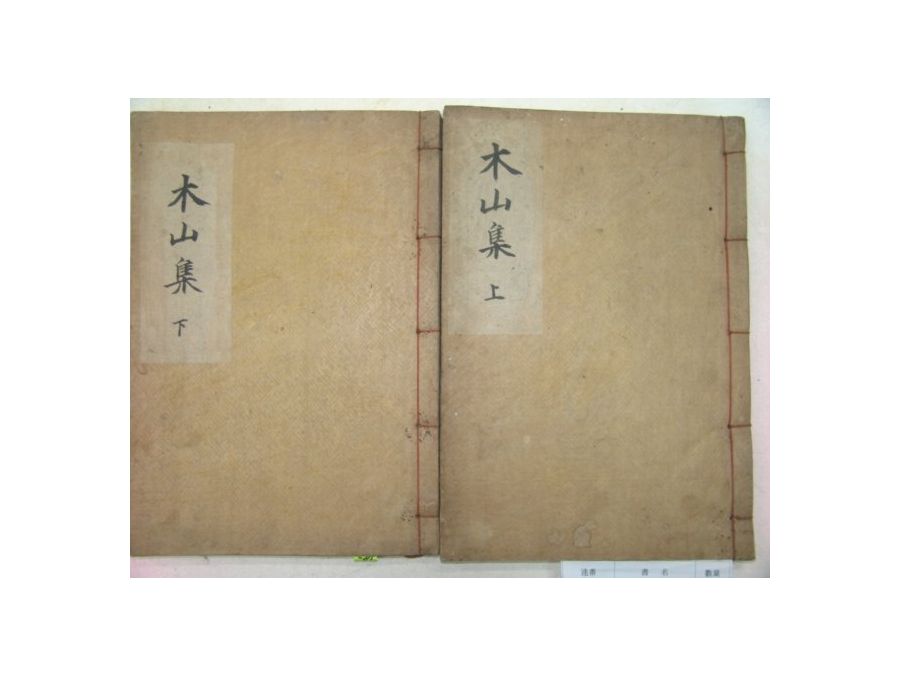 木山集
下
木山集
上
連番 書名 數量